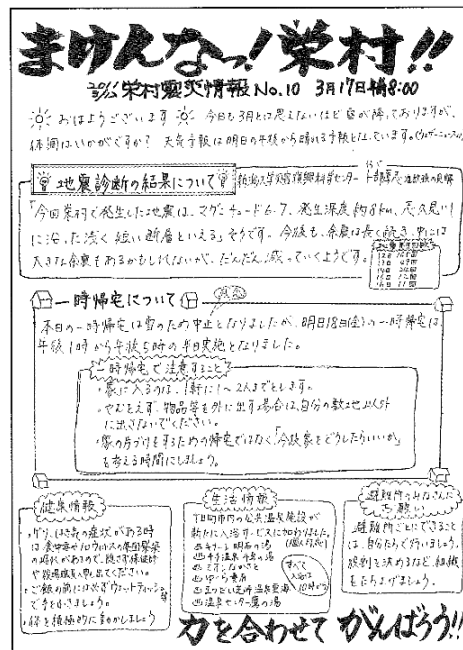 まけんなっ!栄村!!
栄村震災情報 No.10 3月17日 8:00
おはようございます 今日も3月とは思えないほど雪が降っておりますが、
体調はいかがですか? 天気予報は明日の午後から晴れる予報となっています。
地震診断の結果について
「今回栄村で発生した地震は、マグニチュード6.7、発生深度約8km、
に沿った浅く短い断層といえる」そうです。今後も、余震は長く続き、中には
大きな余震もあるかもしれないが、だんだん減っていくようです。
一時帰宅について
本日の一時帰宅は雪のため中止となりましたが、明日18日(金)の一時帰宅は、
午後1時から午後5時の半日実施となりました。
一時帰宅で注意すること
・家に入るのは、1軒に1~2人までとします。
・やむをえず、物品等を外に出す場合は、自分の敷地以外
に出さないでください。
・家の片づけをするための帰宅ではなく「今後家をどうしたらいいか」
を考える時間にしましょう。
健康情報
・ゲリ、はき気の症状がある時
は、食中毒やノロウィルスの集団感染
の恐れがあるので、隠さず保健師
や役場職員へ申し出てください。
・ご飯の前には必ずウェットティッシュ等
で手をふきましょう。
・体を積極的に動かしましょう
生活情報
十日町市内の公共温泉施設が
新たに入浴サービスに加わりました。
明石の湯
千手温泉 千年の湯
ゆくら妻有
温泉センター
すべて
入浴は
避難所のみなさんに
お願い
避難所ごとにできること
は、自分たちで行いましょう。
役割を決めるなど、組織
をたちあげましょう。
力を合わせて がんばろう!!